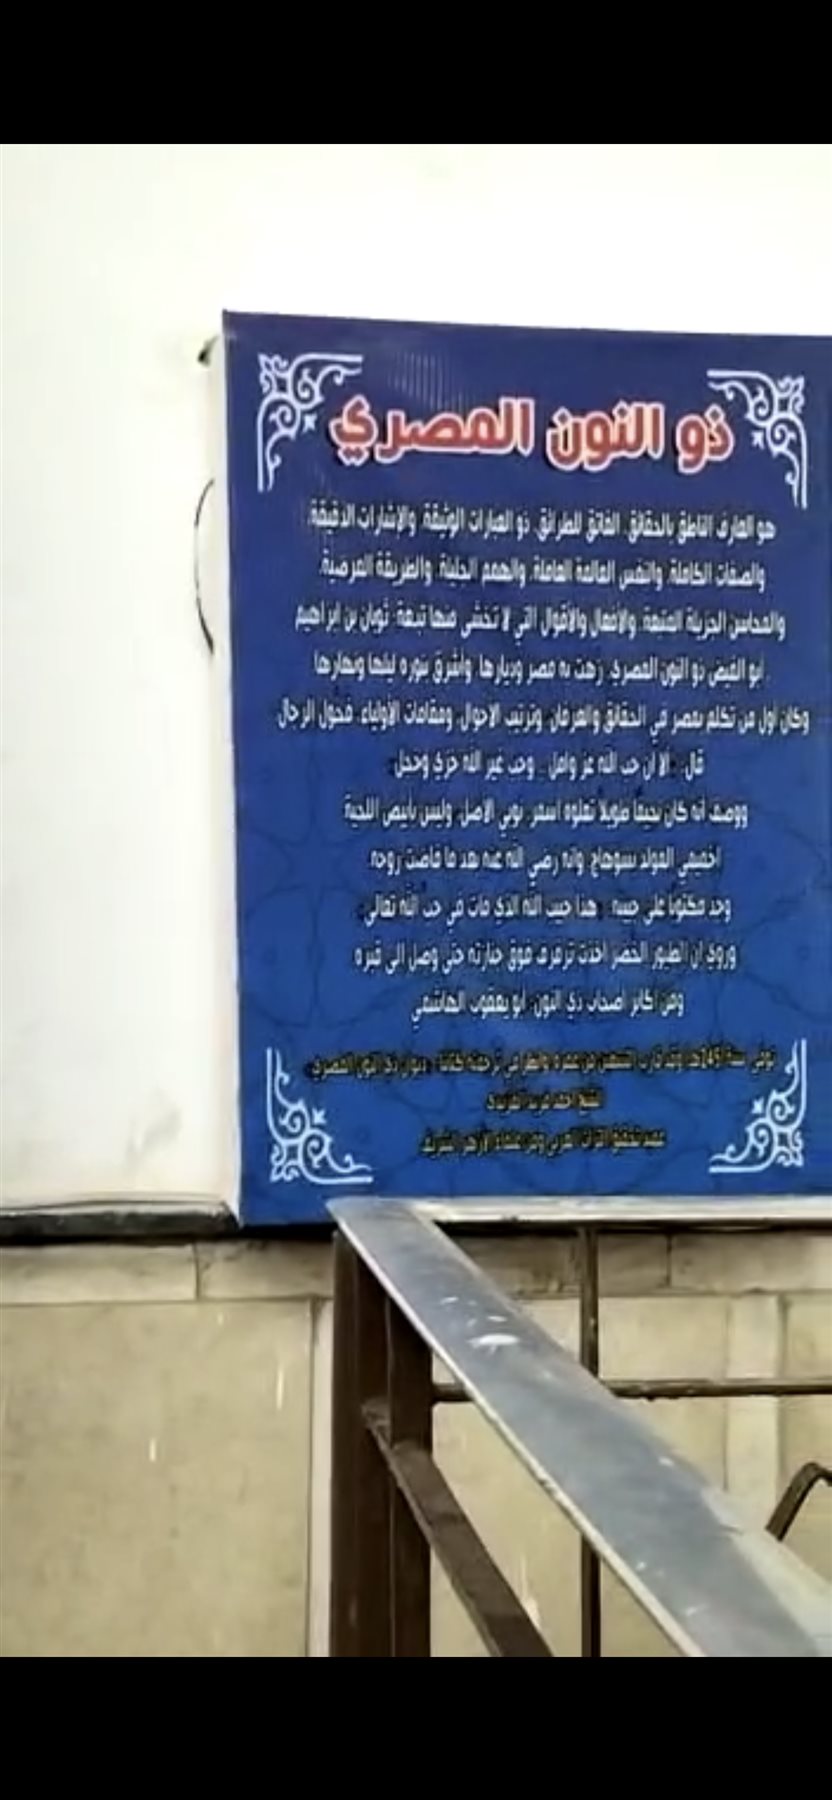 ذو النون المصري
هو العارف الناطق بالحقائق، الفائق للطرائق، ذو العبارات الوثيقة، والإشارات الدقيقة،
والصفات الكاملة، والنفس العالمة العاملة، والهمم الجليلة، والطريقة المرضية،
والمحاسن الجزيلة المتبعة، والأفعال والأقوال التي لا تخشى منها تبعة، ثوبان بن ابراهيم
أبو الفيض ذو النون المصري، زهت به مصر وديارها، وأشرق بنوره ليلها ونهارها
وكان أول من تكلم بمصر في الحقائق والعرفان، وترتيب الأحوال، ومقامات الأولياء، فحُول الرجال
قال: ألا ان حب الله عز وأمل.. وحب غير الله خزي وخجل
ووصف أنه كان نحيفًا طويلًا تعلوه اسمر، نوبي الأصل، وليس بأبيض اللحية
أخميمي المولد بسوهاج، وأنه رضي الله عنه بعد ما فاضت روحه،
وجد مكتوبا على جبينه: هذا حبيب الله الذي مات في حبّ الله تعالى
وروي ان الطيور الخُضر أخذت ترفرف فوق جنازته حتى وصل الى قبره
ومن أكابر أصحاب ذي النون، أبو يعقوب الهاشمي
توفي سنة 245هـ، وقد قارب التسعين من عمره، وانظر في ترجمته كتابنا: ديوان ذي النون المصري
الشيخ أحمد فريد المزيدي
عميد تحقيق التراث العربي ومن علماء الأزهر الشريف